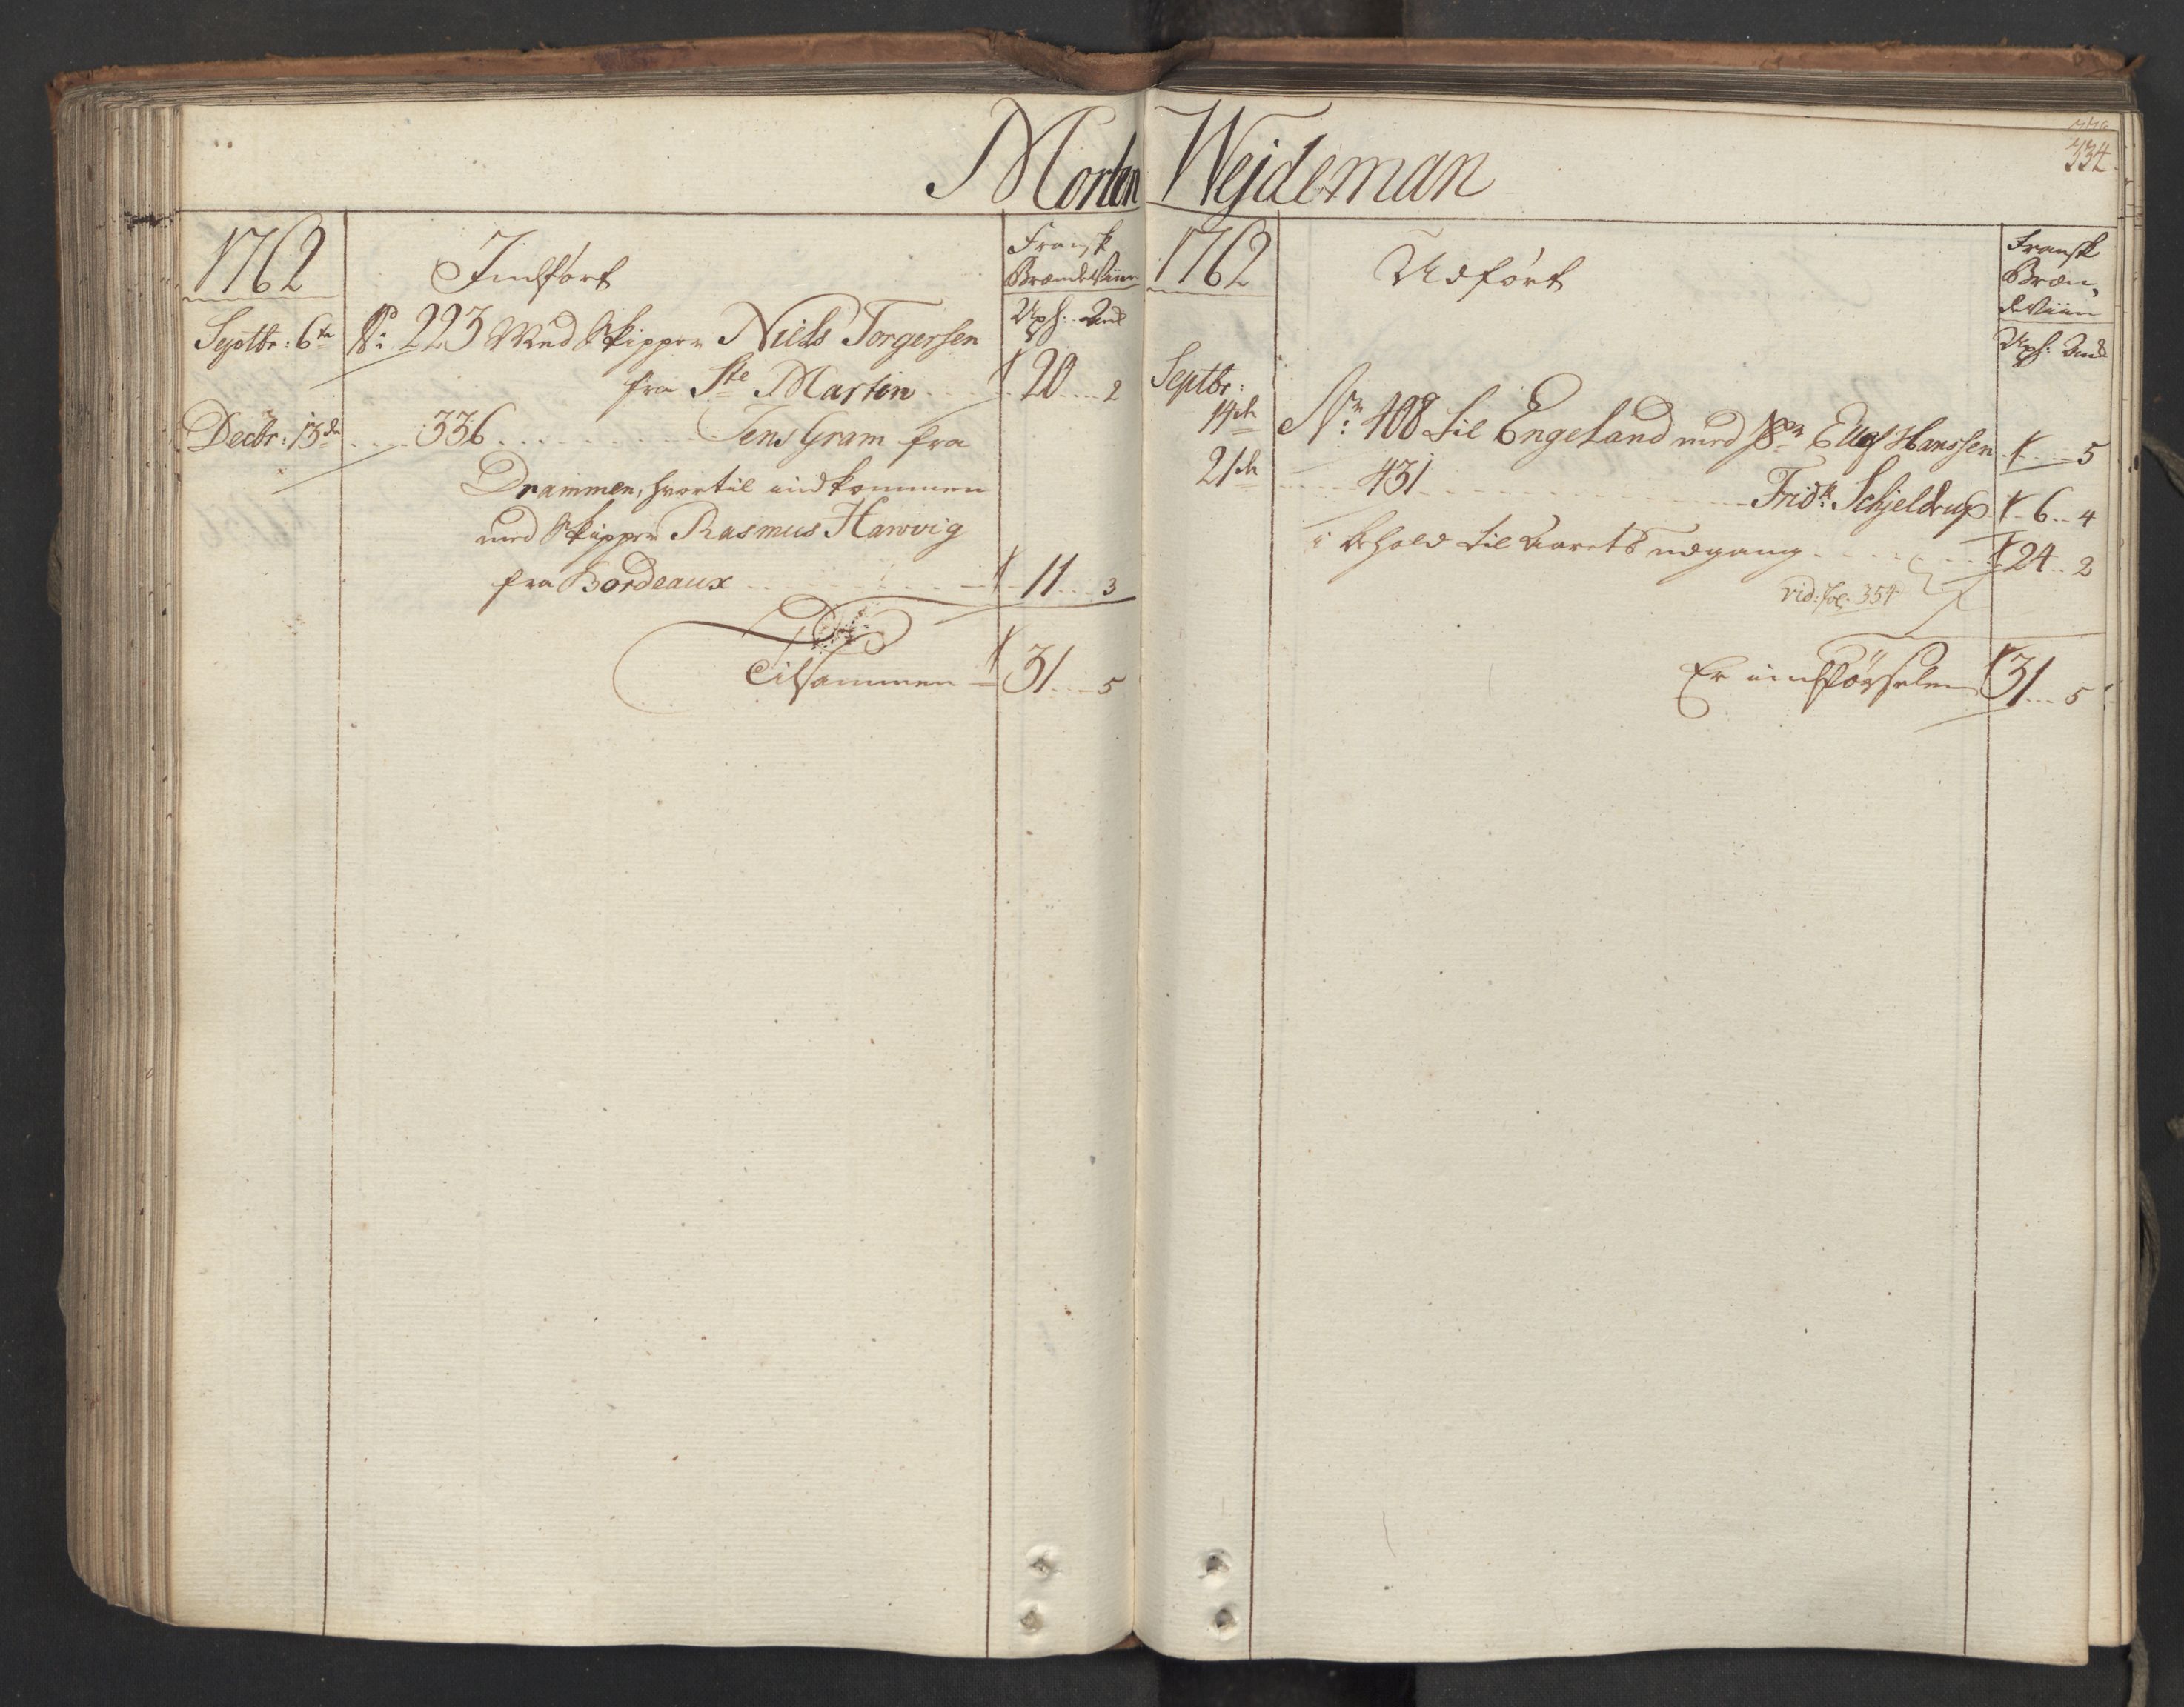 Morten Wejdeman
334
1762
Indført
Fransk
Brændeviin
Oxh: Ank
Septbr: 6te No: 223 Med Skipper Niels Torgersen
fra Ste Martin 20 2
Decbr: 13de 336 Jens Gram fra
Drammen, hvortil indkommen
med Skipper Rasmus Harvig
fra Bordeaux 11 3
Tilsammen 31 5
1762
Udført
Fransk
Bræn-
deviin
Oxh: Ank
Septbr:
14de No: 408 til Engeland med Skr Ellef Hanssen 5
21de 431 Fridk: Schjeldrup 6 4
i behold til Aarets udgang 24 2
vid: fol: 354
Er indførselen 31 5